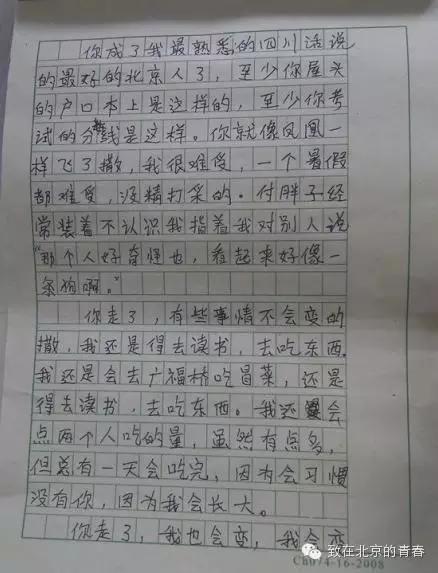 你成了我最熟悉的四川话说
的最好的北京人了，至少你屋头
的户口本上是这样的，至少你考
试的分数线是这样。你就像凤凰一
样飞了撒，我很难受，一个暑假
都难受，没精打采的。付胖子经
常装着不认识我指着我对别人说
“那个人好奇怪也，看起来好像一
条狗啊。”
你走了，有些事情不会变的
撒，我还是得去读书，去吃东西。
我还是会去广福桥吃冒菜，还是
得去读书，去吃东西。我还会
点两个人吃的量，虽然有点多，
但总有一天会吃完，因为会习惯
没有你，因为我会长大。
你走了，我也会变，我会变
致在北京的青春
Ch074-16-2008